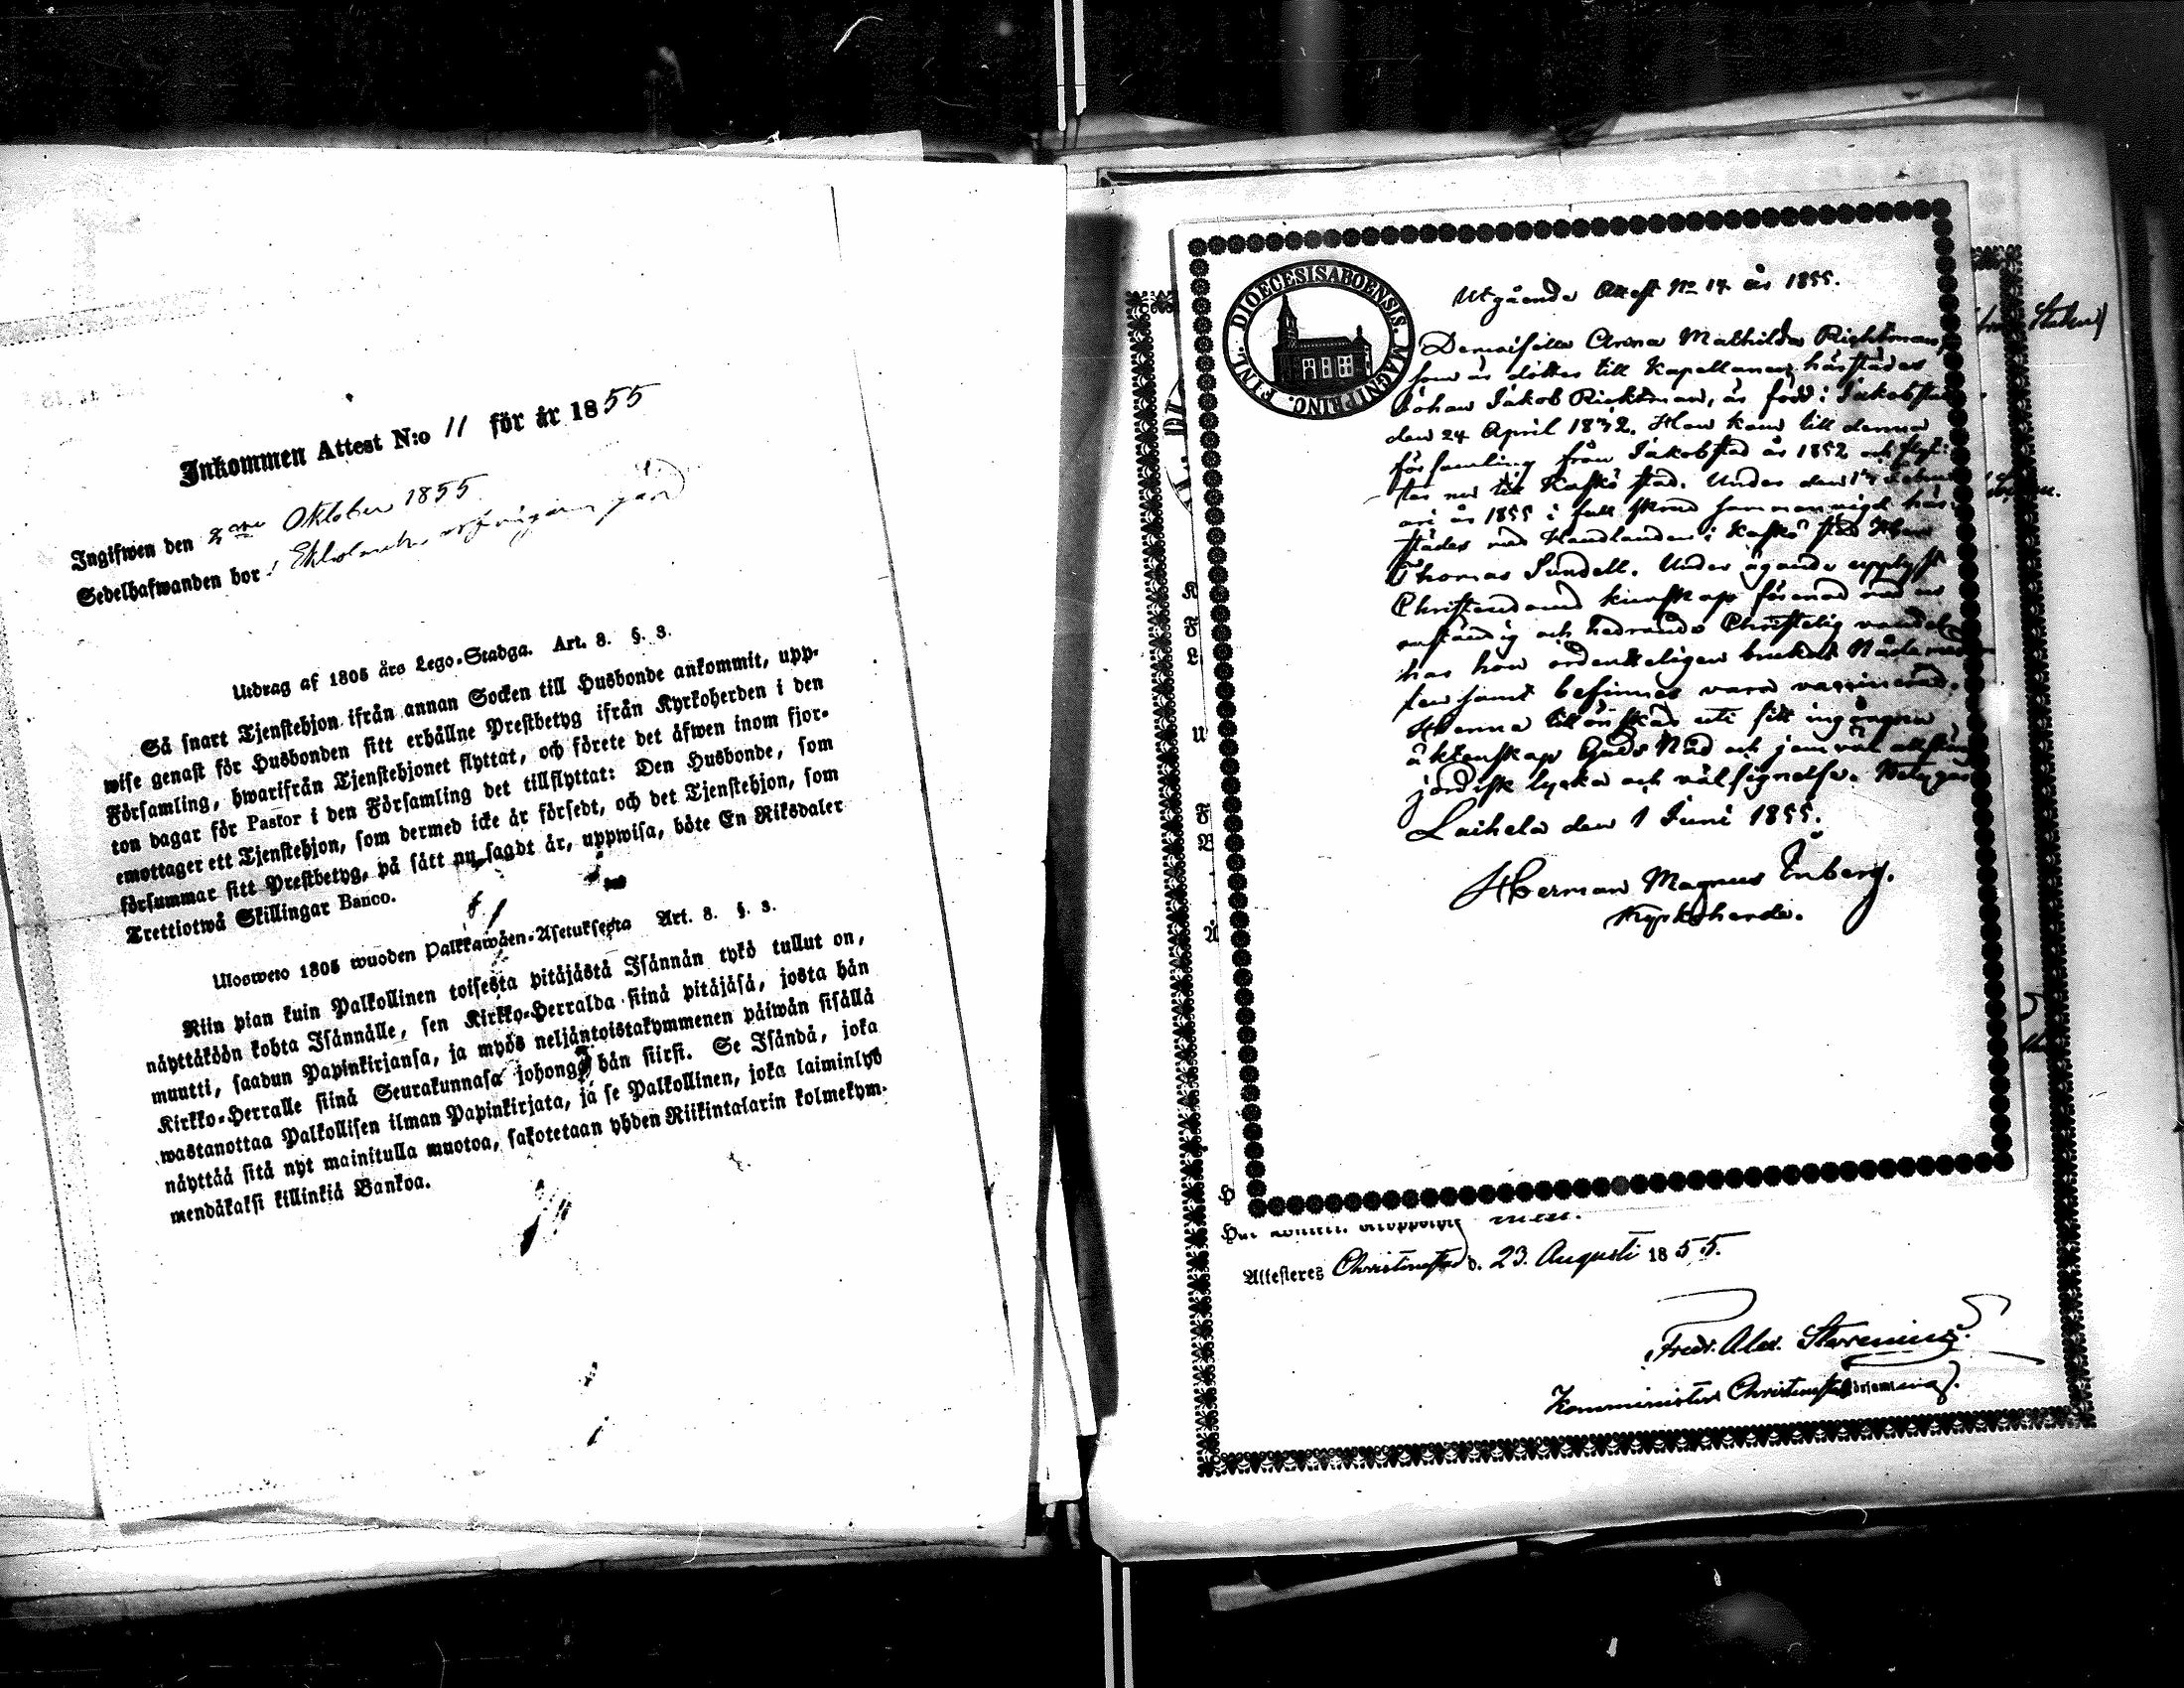 Inkommen Attest N:o 11 för år 1855
Ingifwen den 2 Oktober 1855
Sedelhafwanden bor i gård
Utdrag af 1805 års Lego-Stadga. Art. 8. §. 3.
Så snart Tjenstehjon ifrån annan Socken till Husbonde ankommit, upp-
wise genast för Husbonden sitt erhållne Prestbetyg ifrån Kyrkoherden i den
Församling, hwarifrån Tjenstehjonet flyttat, och förete det äfwen inom fjor-
ton dagar för Pastor i den Församling det tillflyttat: Den Husbonde, som
emottager ett Tjenstehjon, som dermed icke är försedt, och det Tjenstehjon, som
försummar sitt Prestbetyg, på sätt nu sagdt är, uppwisa, böte En Riksdaler
Trettiotwå Skillingar Banco.
Ulosweto 1805 wuoden Palkkawäen-Asetuksesta Art. 8. §. 3.
Niin pian kuin Palkollinen toisesta pitäjästä Isännän tykö tullut on,
näyttäköön kohta Isännälle, sen Kirkko-Herralda siinä pitäjäsä, josta hän
muutti, saadun Papinkirjansa, ja myös neljäntoistakymmenen päiwän sisällä
Kirkko-Herralle siinä Seurakunnasa johonga hän siirsi. Se Isändä, joka
wastanottaa Palkollisen ilman Papinkirjata, ja se Palkollinen, joka laiminlyö
näyttää sitä nyt mainitulla muotoa, sakotetaan yhden Riikintalarin kolmekym-
mendäkaksi killinkiä Bankoa.
DIOECESIS ABOENSIS. MAGNI PRINC. FINL.
Utgående Attest No 17 år 1855.
Demoiselle Anna Mathilda Rickman,
som är dotter till Kapellanen härstädes
Johan Jakob Rickman, är född i Jakobstad
den 24 April 1832. Hon kom till denna
församling från Jakobstad år 1852 och flyt-
tar nu till Kaskö stad. Under den 17 Febru-
ari år 1855 i full skrud sammanvigd här-
städes med Handlanden i Kaskö stad Herr
Thomas Sundell. Under ägande upplyst
Christendoms kunskap förenad med en
anständig och hedrande Christelig vandel
har hon ordenteligen brukat Nådemed-
len samt befinnes vara vaccinerad.
Henne tillönskas uti sitt ingångna
äktenskap Guds Nåd och jemväl allskön
jordisk lycka och välsignelse. Betygar
Laihela den 1 Juni 1855.
Herman Magnus Enberg.
Kyrkoherde.
Attesteres Christinestad d. 23. Augusti 1855.
Fredr. Alex. Stevenius.
Komminister Christinestads församling.